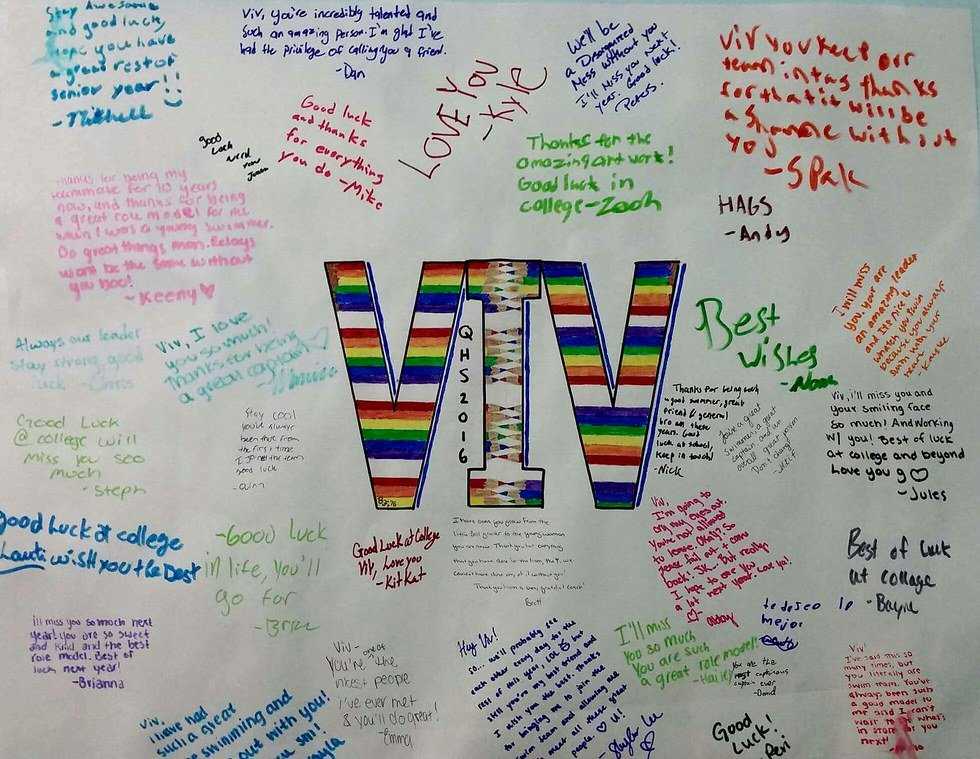 Stay Awesome
and good luck,
hope you have
a great rest of
senior year!!
-Mitchell
Viv, you're incredibly talented and
such an amazing person. I'm glad I've
had the privilege of calling you a friend.
-Dan
LOVE YOU
-Kyle
We'll be
a Disorganized
Mess without you
I'll miss you next
year. Good luck!
Peters.
Viv you kept our
team intact thanks
for that it will be
a shame without
you
-SPak
Good
Luck
Good luck
and thanks
for everything
you do -Mike
Thanks for the
amazing art work!
Good luck in
college-Zach
HAGS
-Andy
Thanks for being my
teammate for 10 years
now, and thanks for being
a great role model for me
when I was a young swimmer.
Do great things man. Relays
wont be the same without
you boo!
-Keeny♡
I will miss
you. you are
an amazing leader
because you always
VIV
QHS2016
Always our leader
stay strong good
luck -Chris
Viv, I love
you so much!
Thanks for being
a great captain
Best
Wishes
-Noah
Thanks for being such
a good swimmer, great
friend & general
bro all these
years. Good
luck at school,
keep in touch!
-Nick
You're a great
swimmer, a great
captain and an
overall great person
Don't change!
Viv, i'll miss you and
your smiling face
so much! And working
w/ you! Best of luck
at college and beyond
Love you g♡
-Jules
Good Luck
@ college will
miss you soo
much
-Steph
Stay cool
you've always
been there from
the first time
I joined the team
good luck
-Quinn
Good luck at college
Lauti wish you the best
-Good luck
in life, you'll
go far
-Brie
Good Luck at College
Viv, Love you
-Kit Kat
I have seen you grow from the
little fall guster to the young woman
you are now. Thank you for everything
that you have done for the team, the
couldn't have done any of it without you!
Thank you a very grateful coach
Britt
Viv,
I'm going to
cry my eyes out
You're not allowed
to leave. Okay? So
please fail out + come
back! JK... but really
I hope to see you
a lot next year. Luv ya!
Best of luck
at collage
-Bayne
ill miss you so much next
year! you are so sweet
and kind and the best
role model. Best of
luck next year!
-Brianna
Viv-
You're the
nicest people
i've ever met
& you'll do great!
-Emma
Hey Viv!
so... we'll probably see
each other every day for the
rest of this year, LOL but
still you're my best friend and
I wish you the best. Thanks
for bringing me to join the
swim team and allowing me
to meet all these great
people ♡ u!
I'll miss
you so much
You are such
a great role model!
-Hailey
te deseo lo
mejor
You are the
most captainous
captain ever
-David
Viv
I've said this so
many times, but
you literally are
swim team. You've
always been such
a good model to
me and I can't
wait to see what's
in store for you
next!
Viv,
I have had
such a great
swimming and
out with you!
Good
Luck!